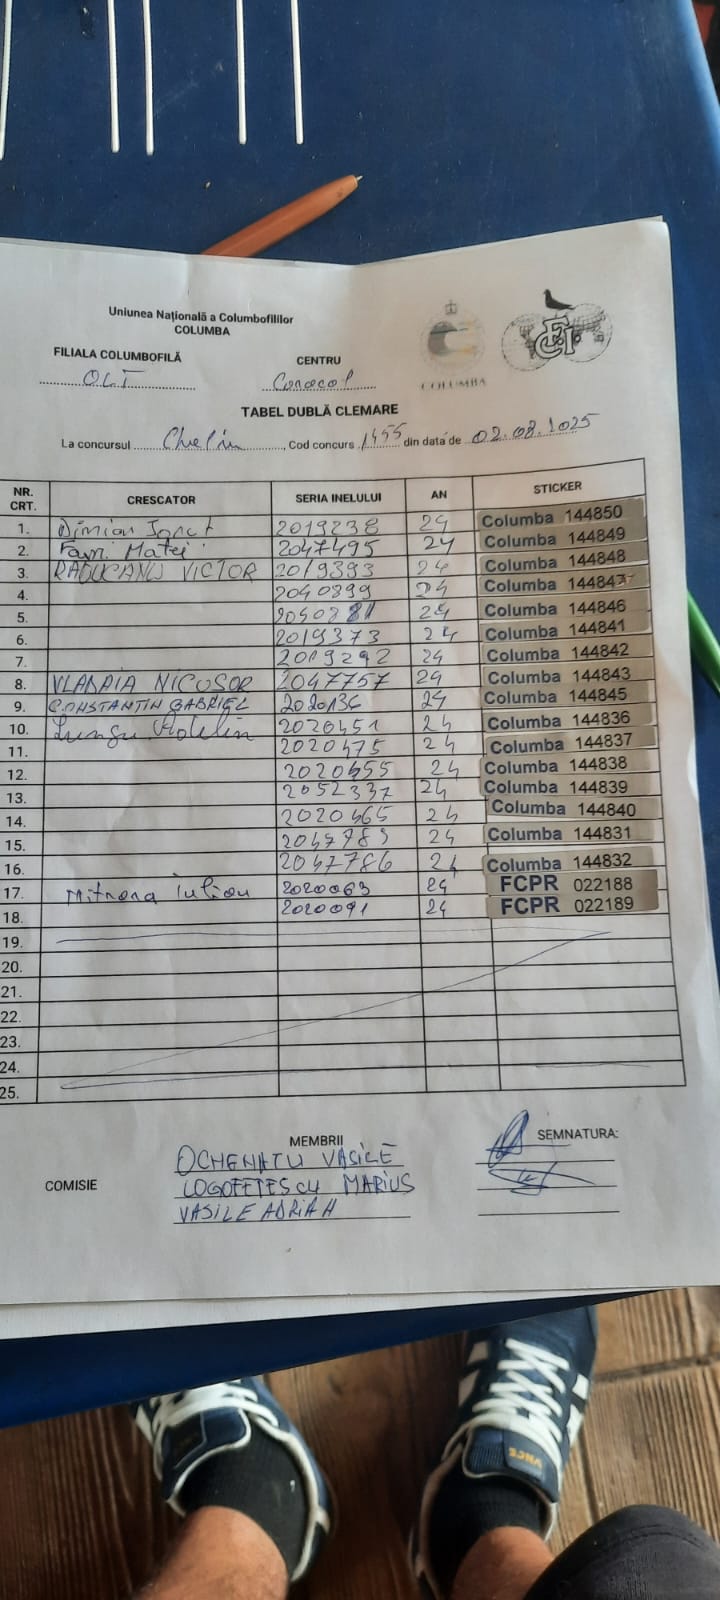 Uniunea Națională a Columbofililor
COLUMBA
COLUMBA
FCI
FILIALA COLUMBOFILĂ OLT
CENTRU Caracal
TABEL DUBLĂ CLEMARE
La concursul Chelm, Cod concurs 1455 din data de 02.08.2025
NR. CRT. CRESCATOR SERIA INELULUI AN STICKER
1. Dimian Ionut 2019238 24 Columba 144850
2. Fam. Matei 2047495 24 Columba 144849
3. RADUCANU VICTOR 2019393 24 Columba 144848
4. 2040899 24 Columba 144847
5. 24 Columba 144846
6. 2019373 24 Columba 144841
7. 2019292 24 Columba 144842
8. VLADAIA NICUSOR 2047757 24 Columba 144843
9. CONSTANTIN GABRIEL 2020136 24 Columba 144845
10. Lungu Adelin 2020451 24 Columba 144836
11. 2020475 24 Columba 144837
12. 2020455 24 Columba 144838
13. 2052337 24 Columba 144839
14. 2020465 24 Columba 144840
15. 2047789 24 Columba 144831
16. 2047786 24 Columba 144832
17. Mitrana Iulian 2020063 24 FCPR 022188
18. 2020091 24 FCPR 022189
19.
20.
21.
22.
23.
24.
25.
MEMBRII SEMNATURA:
OCHENATU VASILE
COMISIE LOGOFETESCU MARIUS
VASILE ADRIAN